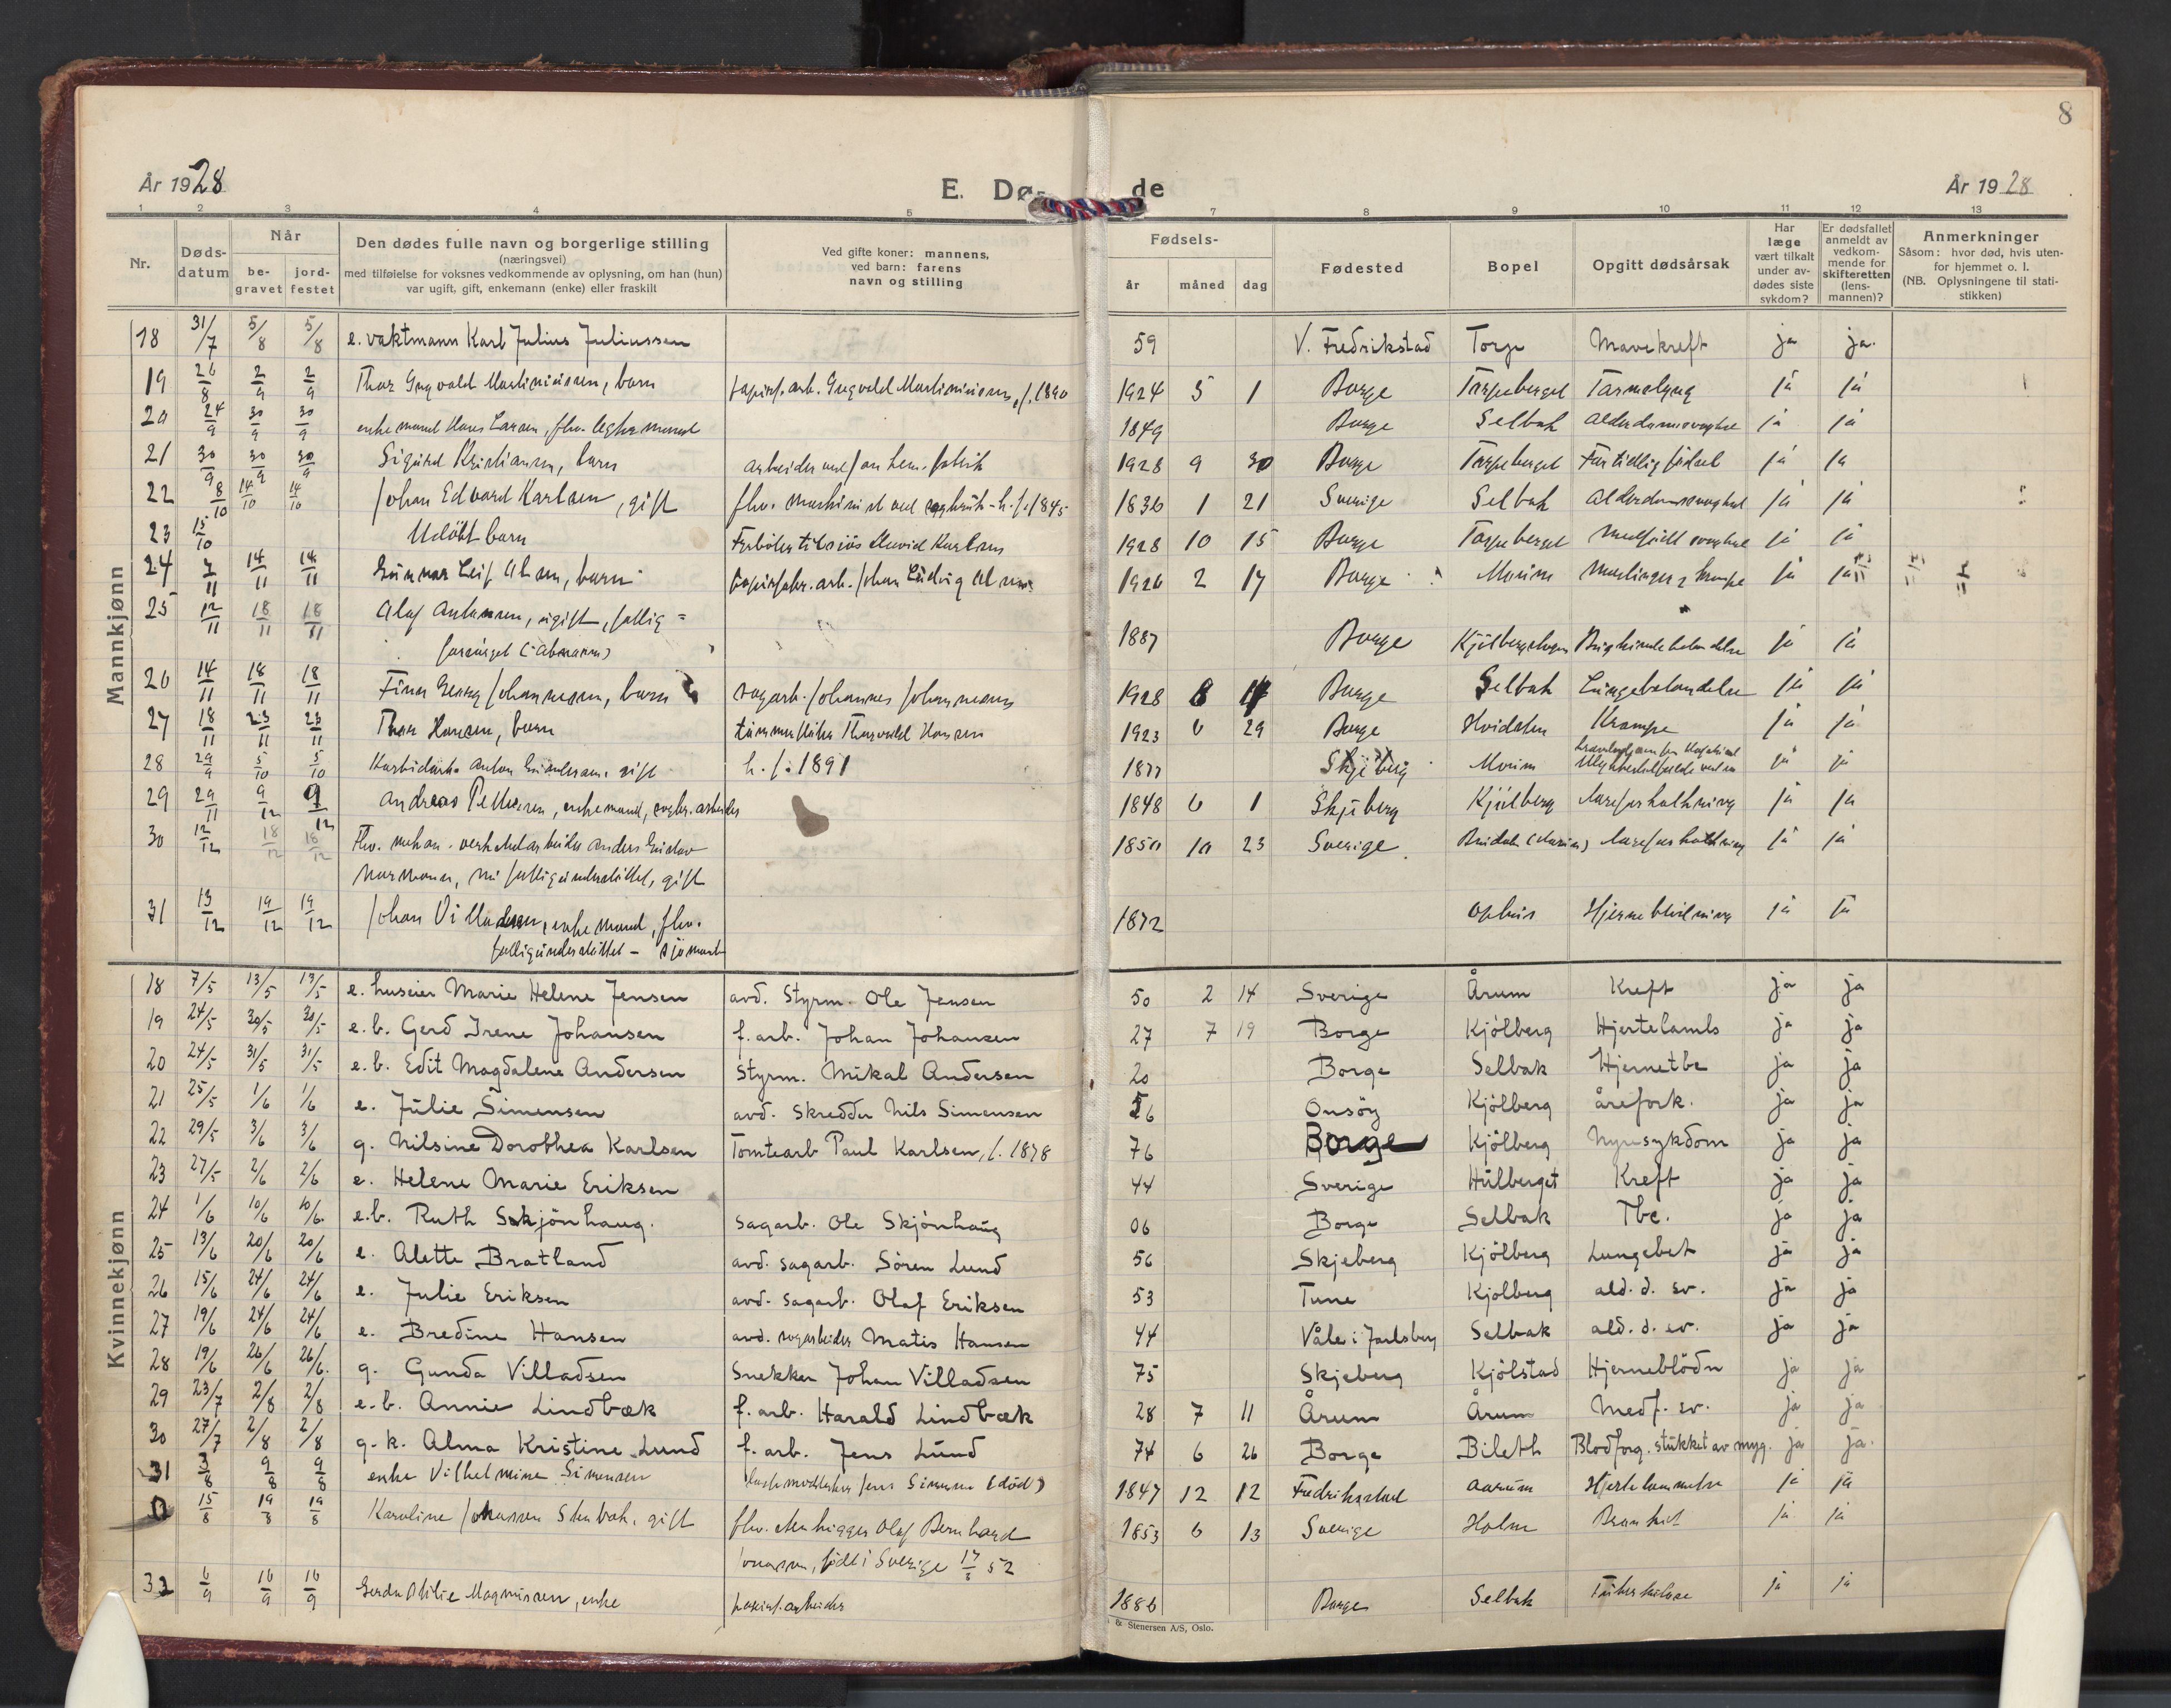 8
År 1928
E. Dø
de
År 1928
1 2 3 4 5 7 8 9 10 11 12 13
Nr.
Dødsdatum
Når
begravet
jordfestet
Den dødes fulle navn og borgerlige stilling
(næringsvei)
med tilføielse for voksnes vedkommende av oplysning, om han (hun)
var ugift, gift, enkemann (enke) eller fraskilt
Ved gifte koner: mannens,
ved barn: farens
navn og stilling
Fødsels-
år måned dag
Fødested
Bopel
Opgitt dødsårsak
Har læge vært tilkalt under avdødes siste sykdom?
Er dødsfallet anmeldt av vedkommende for skifteretten (lensmannen)?
Anmerkninger
Såsom: hvor død, hvis utenfor hjemmet o. l.
(NB. Oplysningene til statistikken)
Mannkjønn
18 31/7 5/8 5/8 e. vaktmann Karl Julius Juliussen 59 V. Fredrikstad Torp Mavekreft ja ja.
19 26/8 2/9 2/9 Thor Ingvald Martiniussen, barn papirf. arb. Ingvald Martiniussen, f. 1890 1924 5 1 Borge Torpeberget Tarmslyng ja ja
20 24/9 30/9 30/9 enkemand Hans Larsen, fhv. 1849 Borge Selbak ja ja
21 30/9 30/9 30/9 Sigurd Kristiansen, barn arbeider ved 1928 9 30 Borge Torpeberget For tidlig födsel ja ja
22 8/10 14/10 14/10 Johan Edvard Karlsen, gift fhv. maskinist ved 1845 1836 1 21 Sverige Selbak ja ja
23 15/10 Udöbt barn David Karlsen 1928 10 15 Borge Torpeberget Medfödt svaghet ja ja
24 14/11 14/11 Gunnar Leif Olsen, barn papirfabr. arb. Johan Ludvig Olsen 1926 2 17 Borge Moum ja ja
25 12/11 18/11 18/11 Olaf Antonsen, ugift, fattig=
forsörget 1887 Borge ja ja
26 14/11 18/11 18/11 Finn Georg Johannesen, barn sagarb. Johannes Johannesen 1928 8 Borge Selbak Lungebetændelse ja ja
27 18/11 23/11 23/11 Thor Hansen, barn tömmerfløter Thorvald Hansen 1923 6 29 Borge Hvidsten Krampe ja ja
28 29/9 5/10 5/10 Anton gift h. f. 1891 1877 Skjeberg Moum ja ja
29 29/11 9/12 9/12 Andreas Pettersen, enkemand, sagbr. arbeider 1848 6 1 Skjeberg Kjölberg Aareforkalkning ja ja
30 12/12 18/12 18/12 Fhv. mekan. verkstedarbeider Anders Gustav
Normann, nu fattigunderstöttet, gift 1850 10 23 Sverige Aareforkalkning ja ja
31 13/12 19/12 19/12 Johan Villadsen, enkemand, fhv.
fattigunderstöttet - sjömand 1872 Ophus Hjerneblödning ja ja
Kvinnekjønn
18 7/5 13/5 13/5 e. huseier Marie Helene Jensen avd. Styrm. Ole Jensen 50 2 14 Sverige Årum Kreft ja ja
19 24/5 30/5 30/5 e. b. Gerd Irene Johansen f. arb. Johan Johansen 27 7 19 Borge Kjölberg Hjertelamls ja ja
20 24/5 31/5 31/5 e. b. Edit Magdalene Andersen Styrm. Mikal Andersen 20 Borge Selbak Hjernetbc ja ja
21 25/5 1/6 1/6 e. Julie Simensen avd. Skredder Nils Simensen 56 Onsöy Kjölberg årefork. ja ja
22 29/5 3/6 3/6 g. Nilsine Dorothea Karlsen Tomtearb Paul Karlsen, f. 1878 76 Borge Kjölberg Nyresykdom ja ja
23 27/5 2/6 2/6 e. Helene Marie Eriksen 44 Sverige Hulberget Kreft ja ja
24 1/6 10/6 10/6. e. b. Ruth Skjönhaug. Sagarb. Ole Skjönhaug 06 Borge Selbak Tbc. ja ja
25 13/6 20/6 20/6 e. Alette Bratland avd. sagarb. Sören Lund 56 Skjeberg Kjölberg Lungebet ja ja
26 15/6 24/6 24/6 e. Julie Eriksen avd. sagarb. Olaf Eriksen 53 Tune Kjölberg ald. d. sv. ja ja
27 19/6 24/6 24/6 e. Bredine Hansen avd. sagarbeider Matis Hansen 44 Våle i Jarlsberg Selbak ald. d. sv. ja ja
28 19/6 26/6 26/6. g. Gunda Villadsen Snekker Johan Villadsen 75 Skjeberg Kjölstad Hjerneblödn ja ja
29 23/7 2/8 2/8 e. b. Annie Lindbæk f. arb. Harald Lindbæk 28 7 11 Årum Årum Medf. sv. ja ja
30 27/7 2/8 2/8 g. k. Alma Kristine Lund f. arb. Jens Lund 74 6 26 Borge Bileth Blodforg. stukket av myg. ja ja.
31 3/8 9/8 9/8 enke Vilhelmine Simensen Jens Simensen (död) 1847 12 12 Fredrikstad Aarum Hjertelammelse ja ja
15/8 19/8 19/8 Karoline Stenbak, gift fhv. stenhugger Olaf Bernhard
födt i Sverige 17/8 52 1853 6 13 Sverige Holm ja ja
33 6/9 16/9 16/9 Gerda Otilie Magnussen, enke papirf. arbeider 1886 Borge Selbak Tuberkulose ja ja
& Stenersen A/S, Oslo.